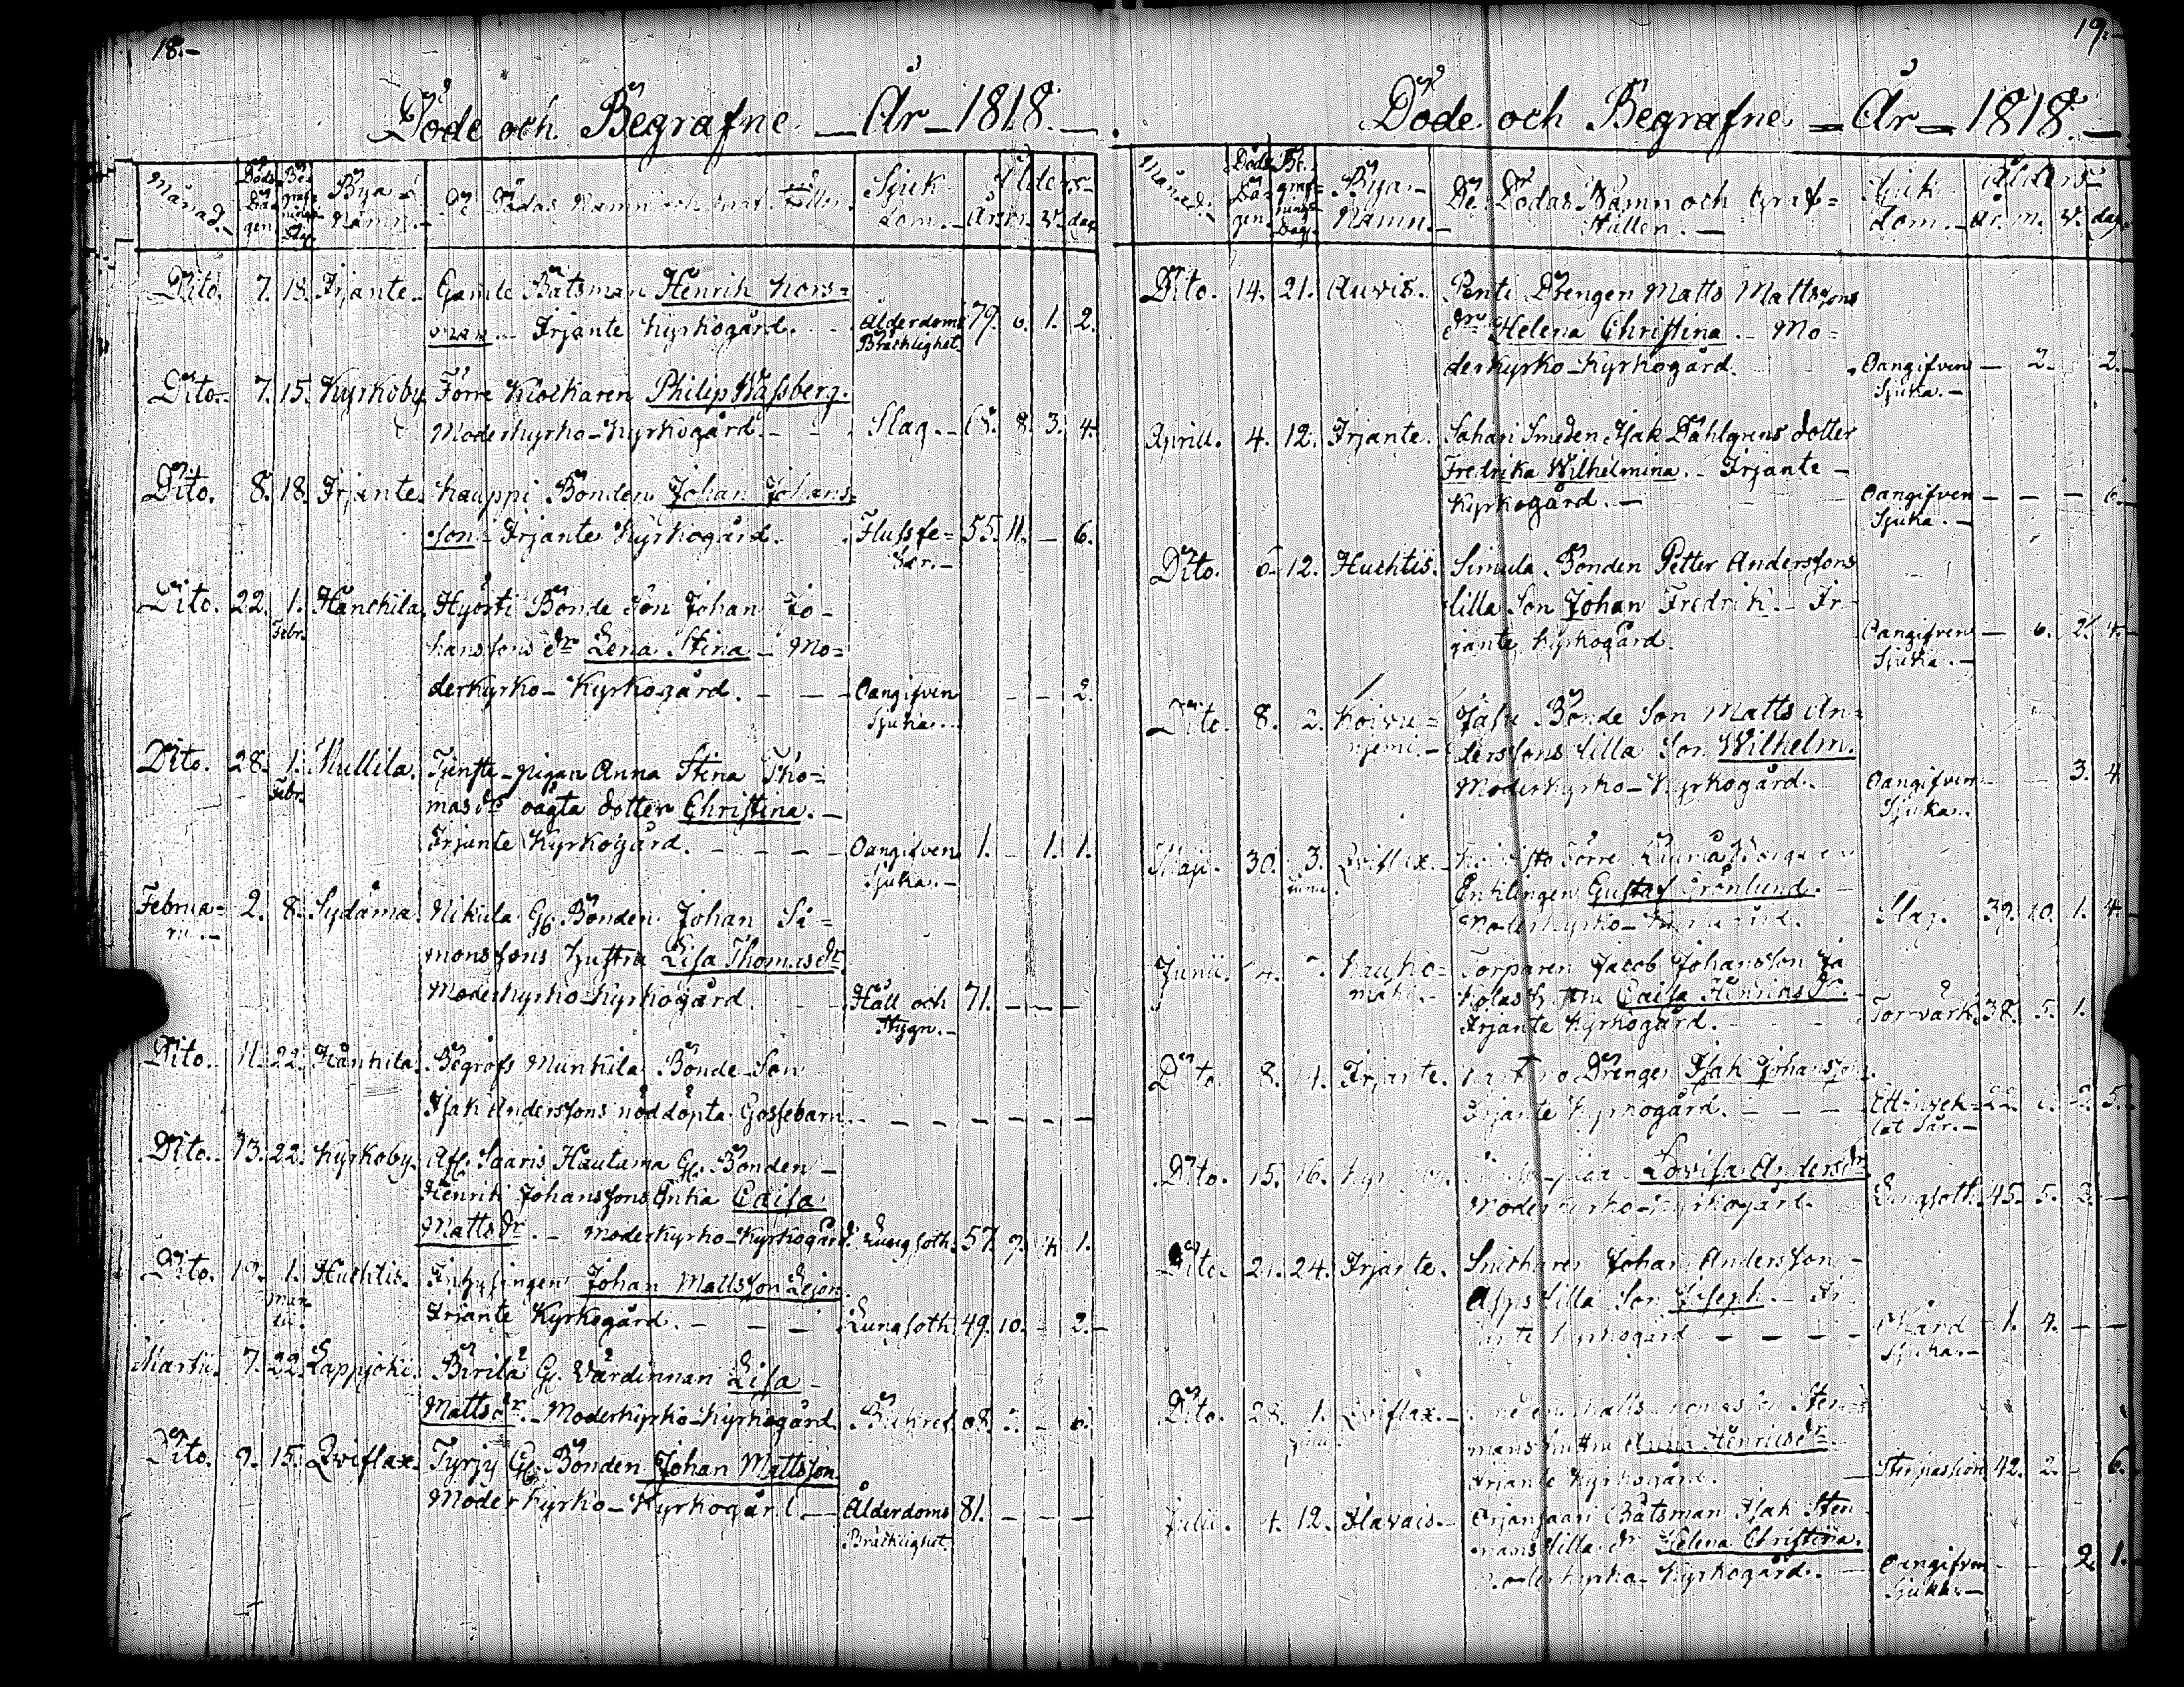 18.-
Döde och Begrafne - År - 1818. -
Månad. Döds Dagen. Begrafnings Dag. Bya Namn. De Dödas Namn och Graf Ställen. Sjukdom. Ålders År. m. v. dag.
Dito. 7. 18. Irjante. Gamle Båtsman Henrik Kors=
man. - Irjante Kyrkogård. Ålderdoms 79. 6. 1. 2.
Bräcklighet.
Dito. 7. 15. Kyrkoby. Förre Klockaren Philip Wassberg.
Moderkyrko-Kyrkogård. - - Slag. - 68. 8. 3. 4.
Dito. 8. 18. Irjante. Kauppi Bonden Johan Johans=
son. - Irjante Kyrkogård. Flussfe= 55. 11. - 6.
ber. -
Dito. 22. 1. Hanckila. Hyörti Bonde Son Johan Jo-
Febr. hanssons dr Lena Stina - Mo=
derkyrko-Kyrkogård. - - - Oangifven - - - 2.
Sjuka. -
Dito. 28. 1. Mullila. Tjenste-pigan Anna Stina Tho=
Febr. mas dr oägta dotter Christina. -
Irjante Kyrkogård. - - - - Oangifven 1. - 1. 1.
Sjuka. -
Februa= 2. 8. Sydåma. Nikula Gl. Bonden Johan Si=
rii. - monssons Hustru Lisa Thomas dr.
Moderkyrko-Kyrkogård. - - Håll och 71. - - -
Stygn. -
Dito. 11. 22. Hankila. Begrofs Munkila Bonde-Son
Isak Anderssons nöddöpta Gossebarn. - - - - - -
Dito. 13. 22. Kyrkoby. Afl. Saaris Hautama Gl. Bonden -
Henrik Johanssons Enka Caisa
Matts dr. - Moderkyrko-Kyrkogård. Lungsoth. 57. 7. 4. 1.
Dito. 19. 1. Huchtis. Inhysingen Johan Mattsson Lejon.
Mar- Irjante Kyrkogård. - - - - Lungsoth. 49. 10. - 2. -
tii.
Martii. 7. 22. Lappjoki. Birilä Gl. Värdinnan Lisa -
Matts dr. - Moderkyrko-Kyrkogård. 68. - 6.
Dito. 9. 15. Qviflax. Tyrjy Gl. Bonden Johan Mattsson
Moderkyrko-Kyrkogård. - Ålderdoms 81. - - -
Bräcklighet.
19.-
Döde och Begrafne - År - 1818. -
Månad. Döds Dagen. Begrafnings Dag. Byar Namn. De Dödas Namn och Graf= Ställen. - Sjukdom. - Ålders År. m. v. dag.
Dito. 14. 21. Auvis. Penti Drengen Matts Mattssons
dr Helena Christina. - Mo=
derkyrko-Kyrkogård. Oangifven - 2. 2. -
Sjuka. -
Aprill. 4. 12. Irjante. Sahari Smeden Isak Dahlgrens dotter
Fredrika Wilhelmina. - Irjante -
Kyrkogård. - Oangifven - - - 6. -
Sjuka. -
Dito. 6. 12. Huchtis. Simula Bonden Petter Anderssons
lilla Son Johan Fredrik. - Ir-
jante Kyrkogård. Oangifven - 6. 2. 4. -
Sjuka. -
Dito. 8. 12. Koivu= Bonde Son Matts An=
niemi. - derssons lilla Son Wilhelm.
Moderkyrko-Kyrkogård. Oangifven - - 3. 4.
Sjuka. -
Maji. 30. 3. Qviflax. - förre
Enklingen Gustaf Grönlund. -
Moderkyrko-Kyrkogård. Slag. 39. 10. 1. 4. -
Junii. Kauko= Torparen Jacob Johansson
maki. - Caisa Henriks dr.
Irjante Kyrkogård. - Torrvärk. 38. 5. 1.
Dito. 8. 14. Irjante. Drengen Isak Johansson.
Irjante Kyrkogård. - - - 22. 5.
Sår. -
Dito. 15. 16. Lovisa Anders dr
Moderkyrko-Kyrkogård. Lungsoth. 45. 5. 3. -
Dito. 21. 24. Irjante. Snickaren Johan Andersson -
Asps lilla Son Joseph. - Ir-
jante Kyrkogård - - - - Okänd - 1. 4. - -
Sjuka. -
Dito. 28. 1. Qviflax. - Matts
mans hustru Anna Henrics dr. -
Irjante Kyrkogård. - 42. 2. - 6. -
Julii. 4. 12. Havais. - Arjansaari Båtsman Isak Sten-
mans lilla dr Helena Christina.
Moderkyrko-Kyrkogård. - Oangifven - - 2. 1.
Sjuka. -